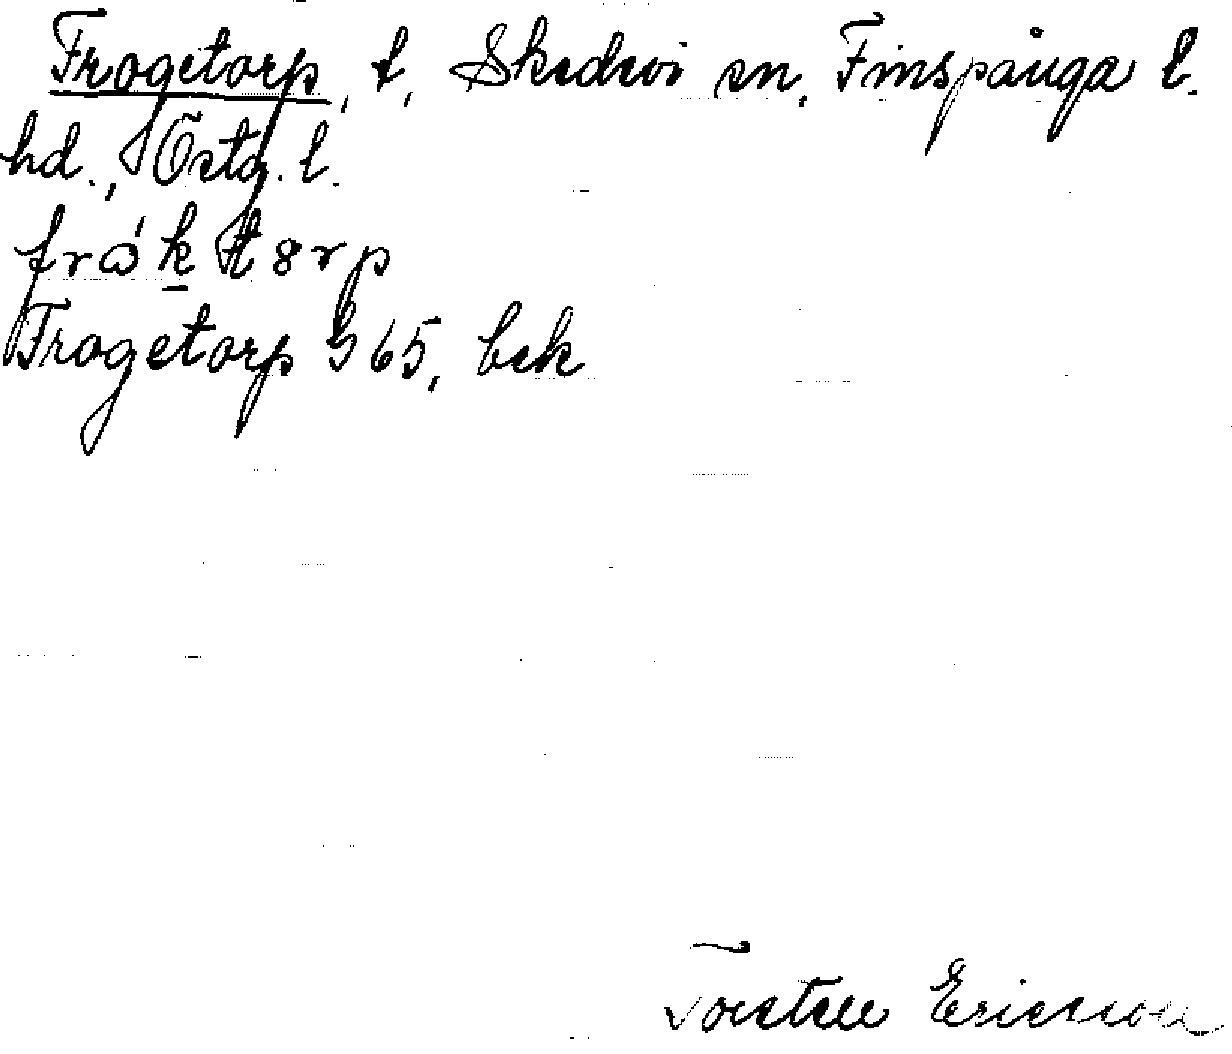 Frogetorp, t, Skedevi sn, Finspånga l.
hd., Östg. l.
Frogetorp G 65, bek
Torsten Ericsson